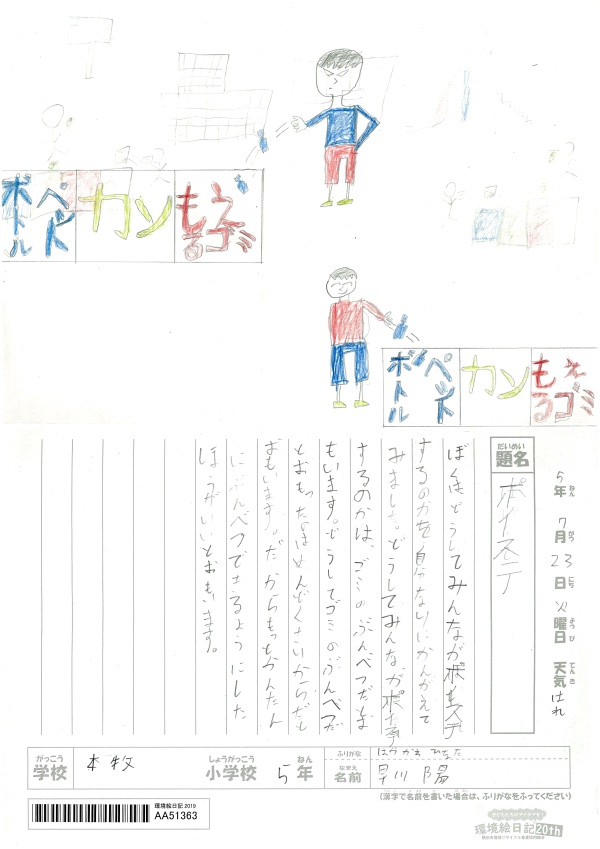 ペット
ボトル
カン
もえ
るゴミ
ペット
ボトル
カン
もえ
るゴミ
5年 7月 23日 火曜日 天気 はれ
ねん がつ にち ようび てんき
だいめい
題名
ポイステ
ぼくはどうしてみんながポイステ
するのかを自分なりにかんがえて
みました。どうしてみんながポイすて
するのかは、ゴミのぶんべつだとお
もいます。どうしてゴミのぶんべつだ
とおもったなはめんどくさいからだと
おもいます。だからもっとかんたん
にぶんべつできるようにした
ほうがいいとおもいます。
がっこう
学校
本牧
しょうがっこう
小学校
5
ねん
年
ふりがな
ひなた
なまえ
名前
早川 陽
(漢字で名前を書いた場合は、ふりがなをふってください)
環境絵日記 2019
AA51363
環境絵日記20th